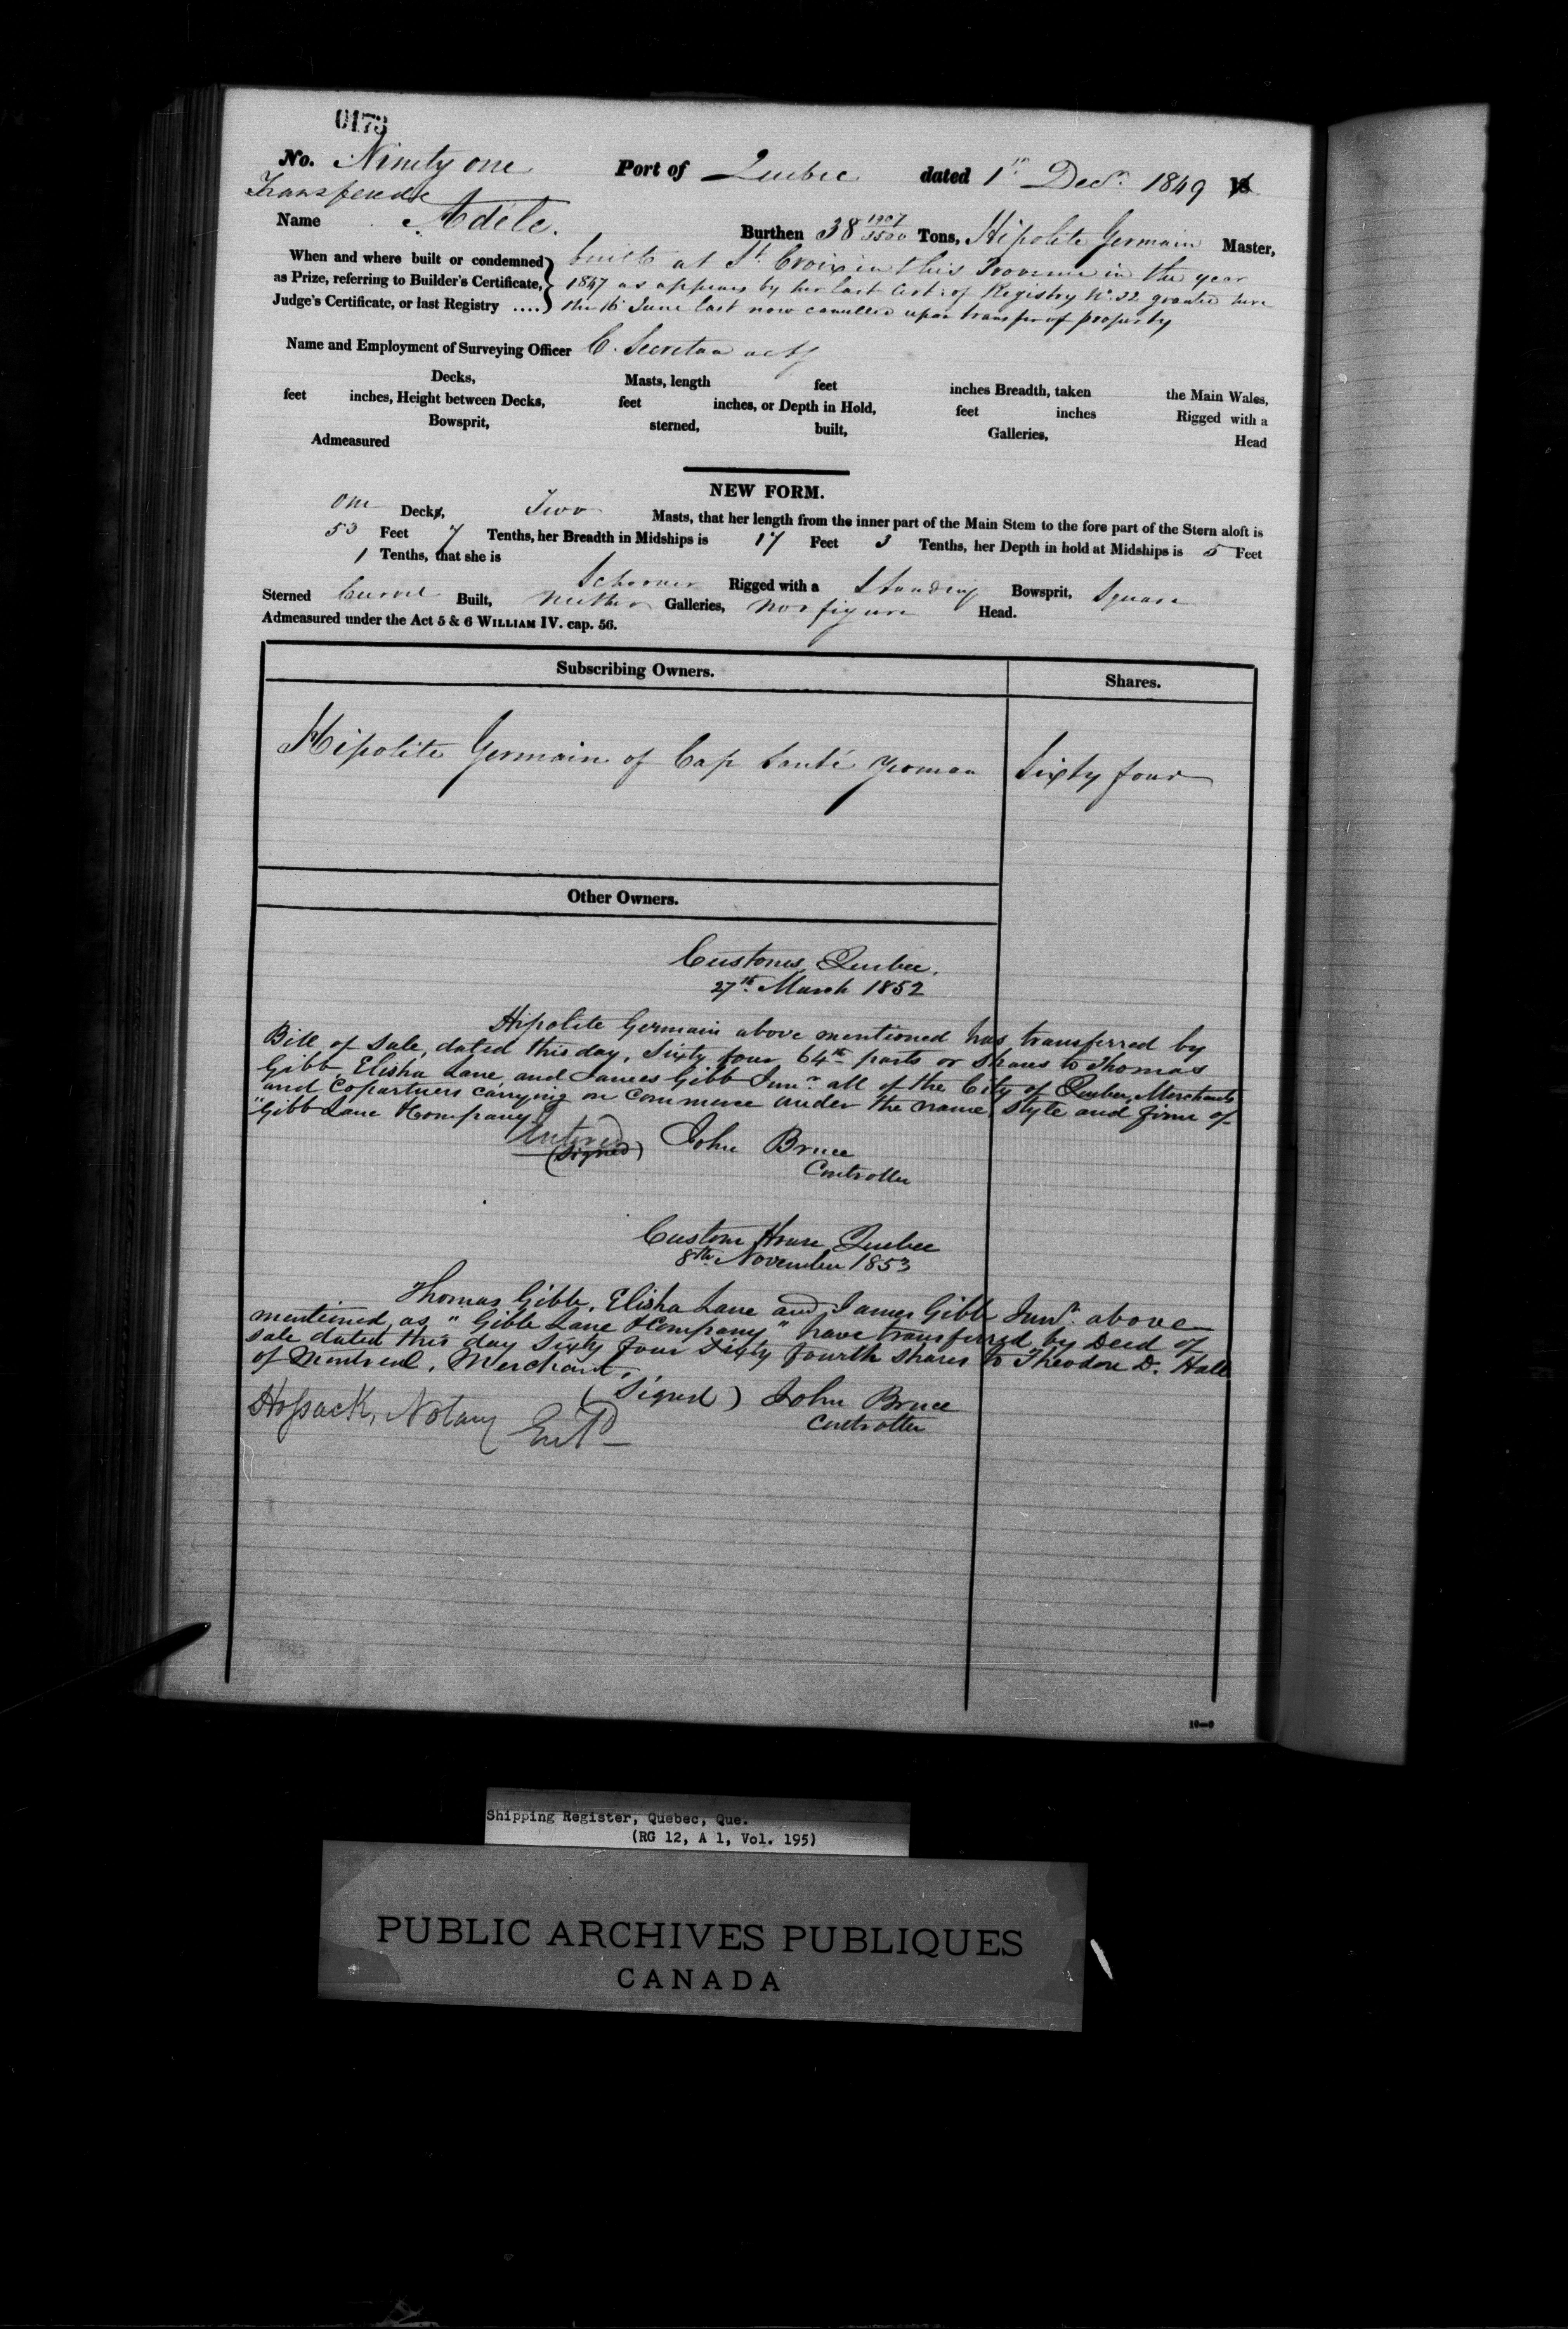 0173
No. Ninety one Port of Quebec dated 1st Decr. 1849 18
Transferred
Name Adéle. Burthen 38 1907/3500 Tons, Hipolite Germain Master,
When and where built or condemned built at St. Croix in this Province in the year
as Prize, referring to Builder's Certificate, 1847 as appears by her last Cert: of Registry No. 32 granted here
Judge's Certificate, or last Registry .... the 16 June last now cancelled upon transfer of property
Name and Employment of Surveying Officer C. Secretan actg
Decks, Masts, length feet inches Breadth, taken the Main Wales,
feet inches, Height between Decks, feet inches, or Depth in Hold, feet inches Rigged with a
Bowsprit, sterned, built, Galleries, Head
Admeasured
NEW FORM.
One Decks, Two Masts, that her length from the inner part of the Main Stem to the fore part of the Stern aloft is
53 Feet 7 Tenths, her Breadth in Midships is 17 Feet 3 Tenths, her Depth in hold at Midships is 5 Feet
1 Tenths, that she is Schooner Rigged with a Standing Bowsprit, Square
Sterned Carvel Built, neither Galleries, nor figure Head.
Admeasured under the Act 5 & 6 WILLIAM IV. cap. 56.
Subscribing Owners. Shares.
Hipolite Germain of Cap Santé yeoman Sixty four
Other Owners.
Customs, Quebec.
27th March 1852
Hipolite Germain above mentioned has transferred by
Bill of Sale, dated this day, Sixty four 64th parts or Shares to Thomas
Gibb, Elisha Lane and James Gibb Junr. all of the City of Quebec, Merchants
and Copartners carrying on Commerce under the name, style and firm of
"Gibb Lane & Company"
Entered
(Signed) John Bruce
Controller
Custom House Quebec
8th November 1853
Thomas Gibb, Elisha Lane and James Gibb Junr. above
mentioned, as "Gibb Lane & Company" have transferred by Deed of
sale dated this day Sixty four Sixty fourth shares to Theodore D. Hall
of Montreal, Merchant.
(Signed) John Bruce
Controller
Hossack, Notary Entd
10—9
Shipping Register, Quebec, Que.
(RG 12, A 1, Vol. 195)
PUBLIC ARCHIVES PUBLIQUES
CANADA